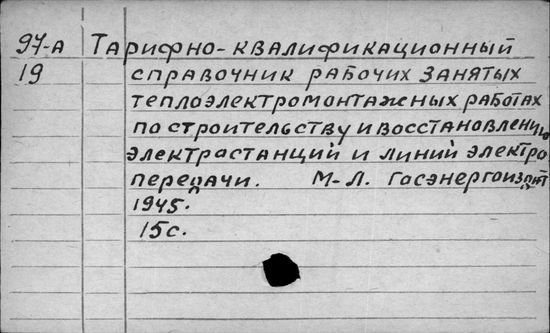 97-А Тарифно-квалификационный
19 справочник рабочих занятых
теплоэлектромонтажных работах
по строительству и восстановлению
электрастанций и линий электро
передачи. М-Л. Госэнергоиздат
1945.
15с.